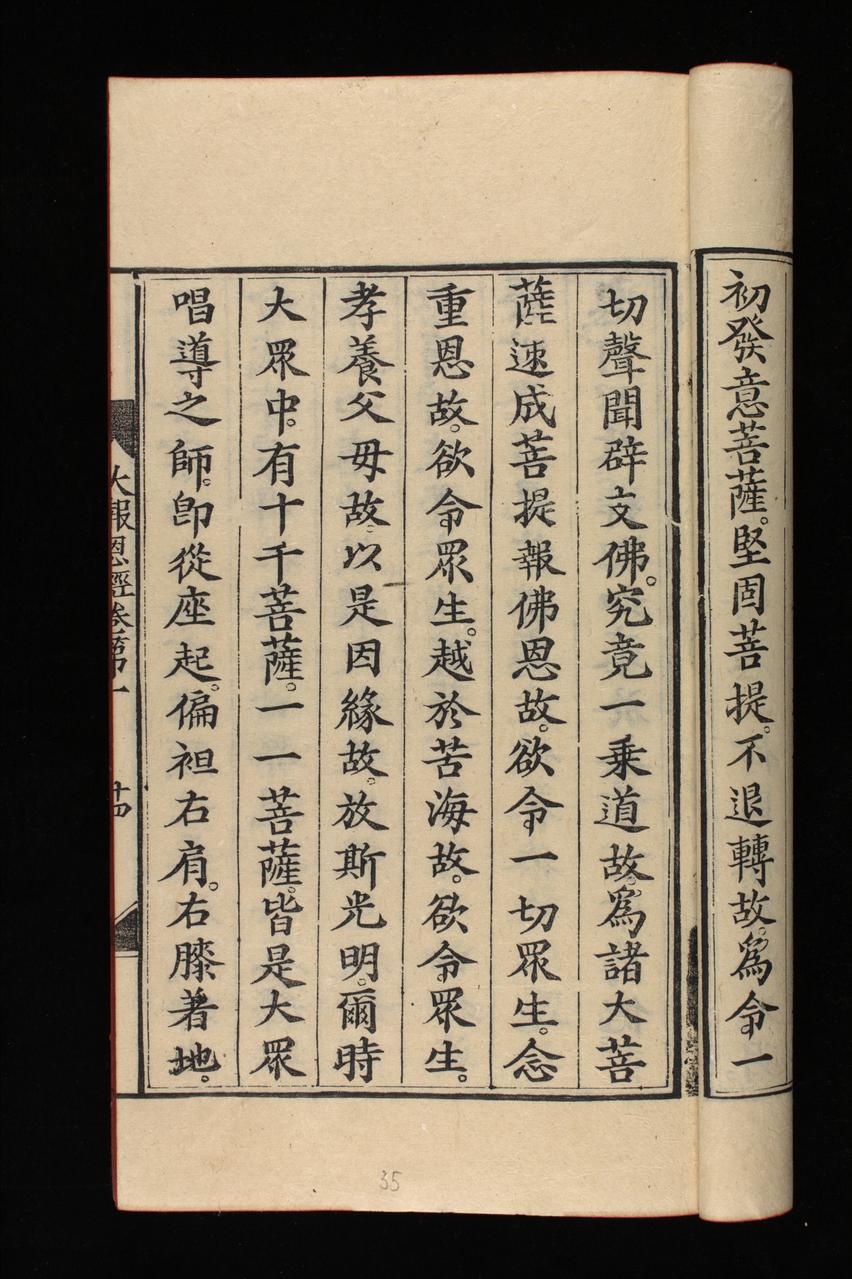 初發意菩薩。堅固菩提。不退轉故。爲令一
切聲聞辟支佛。究竟一乘道故。爲諸大菩
薩速成菩提報佛恩故。欲令一切眾生。念
重恩故。欲令眾生。越於苦海故。欲令眾生。
孝養父母故。以是因緣故。放斯光明。爾時
大眾中。有十千菩薩。一一菩薩。皆是大眾
唱導之師。卽從座起。偏袒右肩。右膝著地。
大報恩經卷第一 十四
35